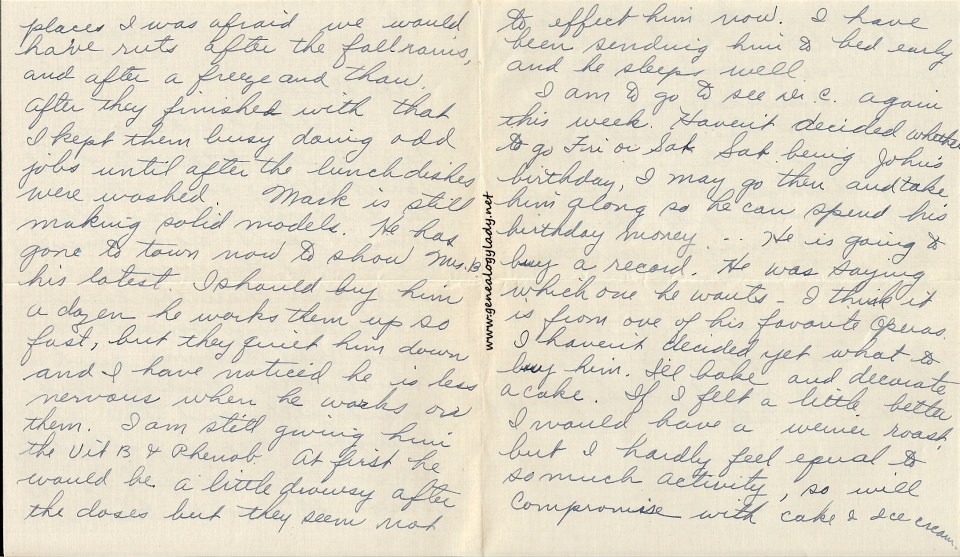 places I was afraid we would
have ruts after the fall rains,
and after a freeze and thaw.
After they finished with that
I kept them busy doing odd
jobs until after the lunch dishes
were washed. Mark is still
making solid models. He has
gone to town now to show Mrs. B
his latest. I should buy him
a dozen he works them up so
fast, but they quiet him down
and I have noticed he is less
nervous when he works on
them. I am still giving him
the Vit B & Phenob. At first he
would be a little drowsy after
the doses but they seem not
to effect him now. I have
been sending him to bed early
and he sleeps well.
I am to go to see Dr. C. again
this week. Haven't decided whether
to go Fri or Sat. Sat. being John's
birthday, I may go then and take
him along so he can spend his
birthday money... He is going to
buy a record. He was saying
which one he wants - I think it
is from one of his favorite Operas.
I haven't decided yet what to
buy him. I'll bake and decorate
a cake. If I felt a little better
I would have a weiner roast
but I hardly feel equal to
so much activity, so will
compromise with cake & ice cream.
www.genealogylady.net